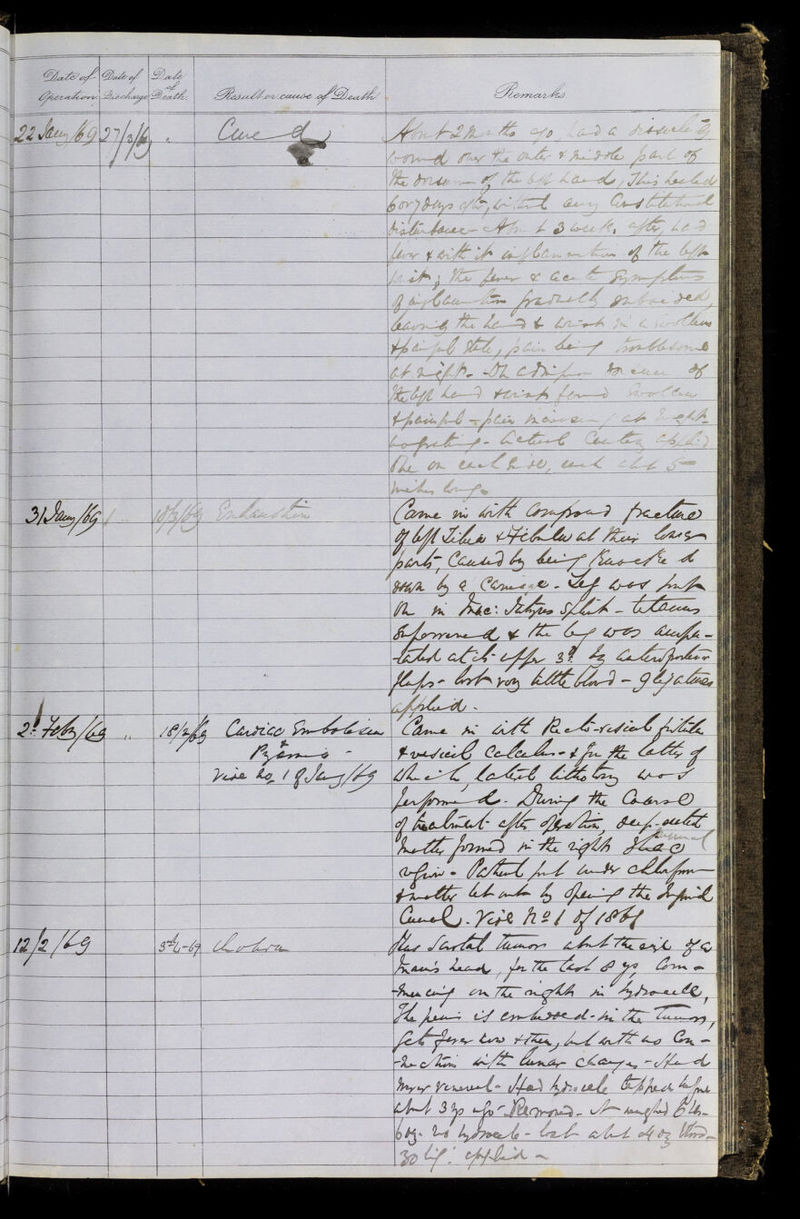 Date of Operation
Date of Discharge
Date of Death
Result or cause of Death
Remarks
22 Jany/69 27/3/69 " Cured
About 2 months ago had a
wound over the outer & middle part of
the dorsum of the left hand, This healed
6 or 7 days after, without any Constitutional
disturbance - About 3 weeks after, had
fever & with it inflammation of the left
wrist; the fever & acute symptoms
of inflammation gradually subsided,
leaving the hand & wrist in a swollen
& painful state, pain being troublesome
at night. - On admission of
the left hand & wrist found swollen
& painful - pain increasing at night -
no grating - Actual Cautery applied
one on each side, each about 5
inches long.
31 Jany/69 10/3/69 Exhaustion
Came in with compound fracture
of left Tibia & Fibula at their lower
parts, caused by being knocked
down by a Carriage - Leg was put
on in Mac: Intyres splint - tetanus
supervened & the leg was ampu-
tated at its upper 3d. by antero posterior
flaps - lost very little blood - 9 ligatures
applied.
2d. Feby/69 " 18/2/69 Cardiac Embolism
& Pyæmia -
Vide No. 1 of Jany/69
Came in with Recto-vesical fistula
& vesical calculus - & for the latter of
which, lateral lithotomy was
performed. During the Course
of treatment after operation, deep-seated
matter formed in the right Iliac
region - Patient put under chloroform
& matter let out by opening the Inguinal
Canal. Vide No 1 of 1869
12/2/69 3d/4-69 Cholera
Has Scrotal tumor about the size of a
man's head, for the last 8 ys, Com-
-mencing on the right in hydrocele,
The penis is embedded in the tumor,
gets fever now & then, but with no Con-
-nection with lunar changes - Had
never venereal - Had hydrocele tapped before
about 3 ys ago - Removed - It weighed 6 lbs -
6 oz. no hydrocele - lost about oz blood -
30 lig: applied -